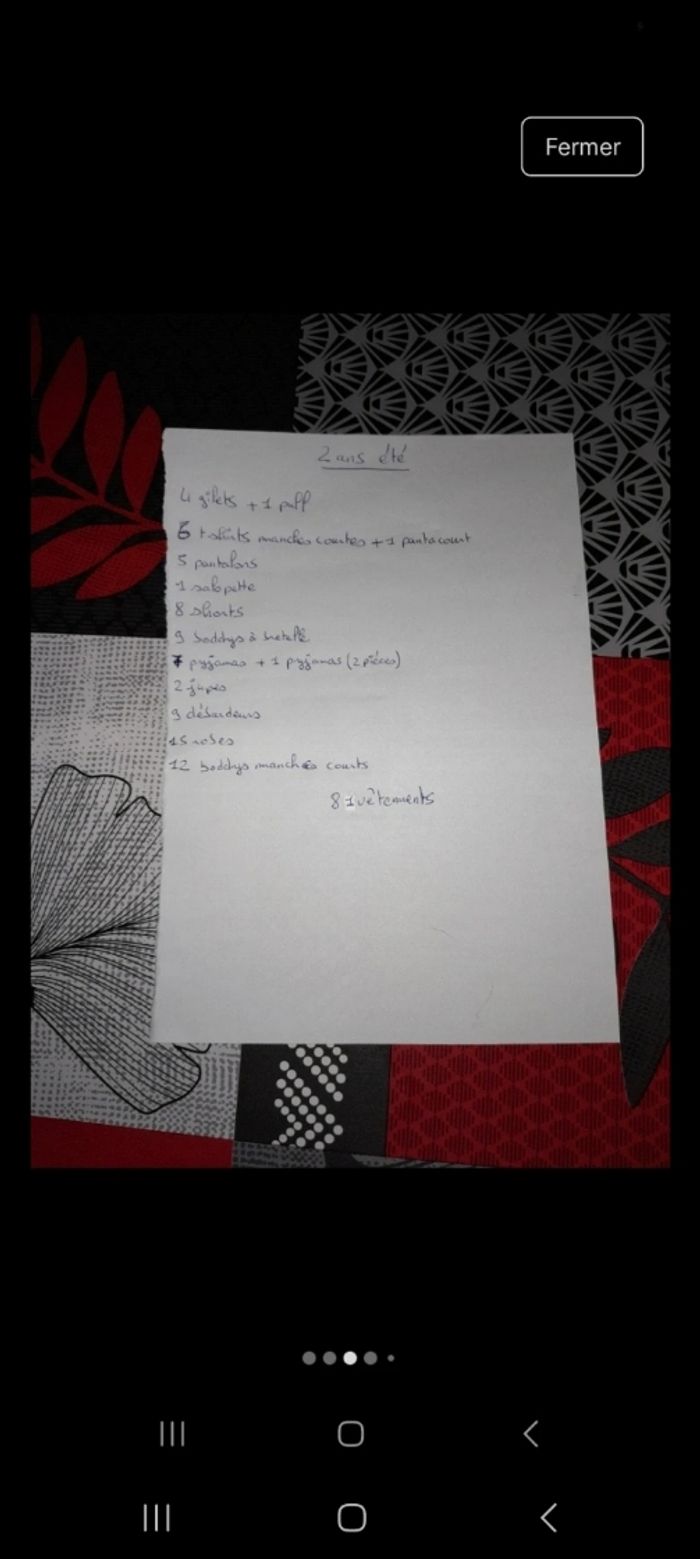 Fermer
2 ans été
4 gilets + 1 pull
6 t-shirts manches courtes + 1 pantacourt
5 pantalons
1 salopette
8 shorts
9 boddys à bretelle
7 pyjamas + 1 pyjamas (2 pièces)
2 jupes
9 débardeurs
15 robes
12 boddys manches courts
81 vêtements